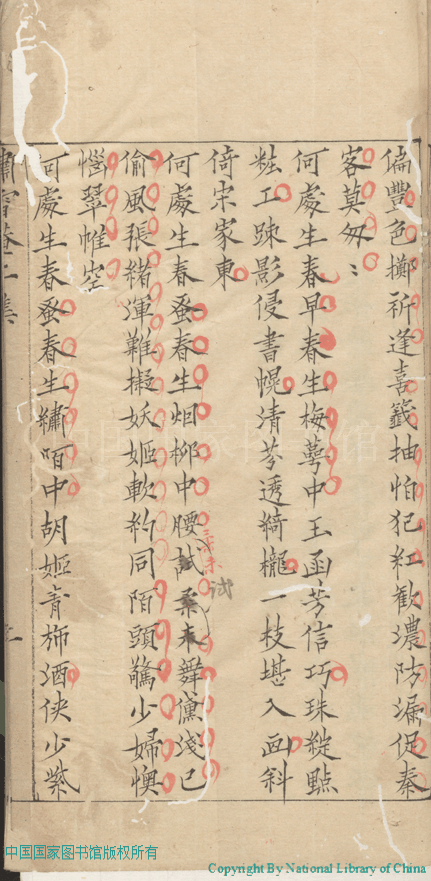 偏豐色擲祈逢喜籤抽怕犯紅歡濃防漏促奏
客莫匆〻
何處生春早春生梅萼中玉函芳信巧珠綻點
粧工踈影侵書幌清芬透綺櫳一枝堪入画斜
倚宋家東
何處生春蚤春生烟柳中腰試柔未舞黛淺已
柔未試
偷風張緒渾難擬妖姬軟約同陌頭驚少婦懊
惱翠帷空
何處生春蚤春生繡陌中胡姬青斾酒俠少紫
中国国家图书馆版权所有
Copyright By National Library of China